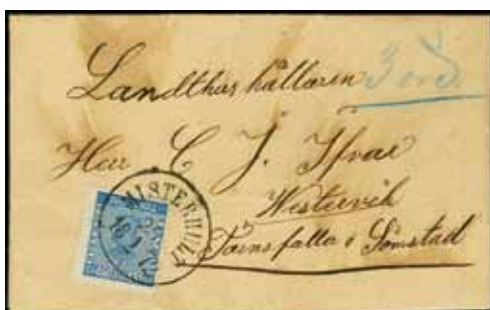 Landthushållaren 3 öre
Herr C. J. Ifvar
Westervik
Törnsfalla o Lömstad
MISTERHULT